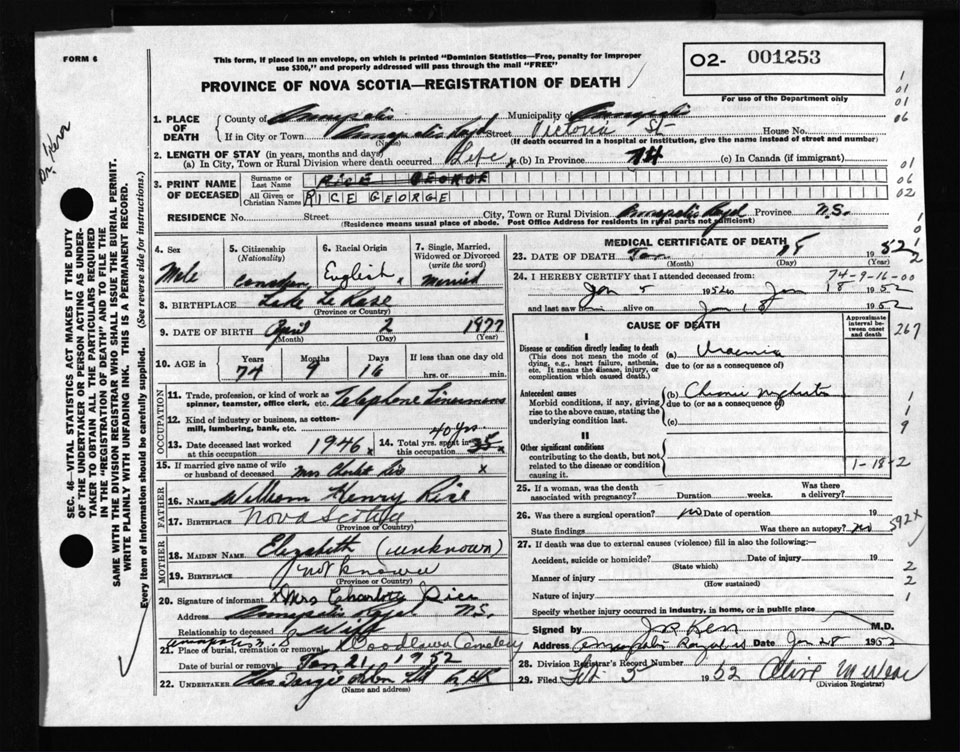 FORM 6
This form, if placed in an envelope, on which is printed "Dominion Statistics—Free, penalty for improper
use $300," and properly addressed will pass through the mail "FREE"
PROVINCE OF NOVA SCOTIA—REGISTRATION OF DEATH
O2- 001253
For use of the Department only
Dr. Kerr
1. PLACE OF DEATH
County of Annapolis Municipality of Annapolis
If in City or Town Annapolis Royal Street Victoria St House No.
(Name) (If death occurred in a hospital or institution, give the name instead of street and number)
2. LENGTH OF STAY (in years, months and days)
(a) In City, Town or Rural Division where death occurred Life x (b) In Province 74 (c) In Canada (if immigrant)
3. PRINT NAME OF DECEASED
Surname or Last Name RICE GEORGE
All Given or Christian Names RICE GEORGE
RESIDENCE No. Street City, Town or Rural Division Annapolis Royal Province N.S.
(Residence means usual place of abode. Post Office Address for residents in rural parts not sufficient)
4. Sex Male
5. Citizenship (Nationality) Canadian
6. Racial Origin English x
7. Single, Married, Widowed or Divorced (write the word) Married
8. BIRTHPLACE Lake La Rose
(Province or Country)
9. DATE OF BIRTH April 2 1877
(Month) (Day) (Year)
10. AGE in Years Months Days If less than one day old
74 9 16 hrs. or min.
OCCUPATION
11. Trade, profession, or kind of work as spinner, teamster, office clerk, etc. Telephone Linesman
12. Kind of industry or business, as cotton-mill, lumbering, bank, etc.
13. Date deceased last worked at this occupation 1946 x
14. Total yrs. spent in this occupation 40 yrs 35 x
15. If married give name of wife or husband of deceased Mrs x
FATHER
16. NAME William Henry Rice
17. BIRTHPLACE Nova Scotia
(Province or Country)
MOTHER
18. MAIDEN NAME Elizabeth (unknown)
19. BIRTHPLACE not known
(Province or Country)
20. Signature of informant x Mrs Charlotte Rice
Address Annapolis Royal N.S.
Relationship to deceased Wife
21. Place of burial, cremation or removal Woodlawn Cemetery
Date of burial or removal Jan 21, 1952
22. UNDERTAKER
(Name and address)
SEC. 46—VITAL STATISTICS ACT MAKES IT THE DUTY
OF THE UNDERTAKER OR PERSON ACTING AS UNDER-
TAKER TO OBTAIN ALL THE PARTICULARS REQUIRED
IN THE "REGISTRATION OF DEATH" AND TO FILE THE
SAME WITH THE DIVISION REGISTRAR WHO SHALL ISSUE THE BURIAL PERMIT.
WRITE PLAINLY WITH UNFADING INK. THIS IS A PERMANENT RECORD.
Every item of information should be carefully supplied. (See reverse side for instructions.)
MEDICAL CERTIFICATE OF DEATH
23. DATE OF DEATH Jan 18 1952
(Month) (Day) (Year)
74-9-16-00
24. I HEREBY CERTIFY that I attended deceased from
Jan 5 1952 to Jan 18 1952
and last saw him alive on Jan 18 1952
CAUSE OF DEATH
Approximate interval between onset and death
I
Disease or condition directly leading to death (a) Uraemia
(This does not mean the mode of dying, e.g., heart failure, asthenia, etc. It means the disease, injury, or complication which caused death.)
due to (or as a consequence of)
Antecedent causes (b) Chronic nephritis
Morbid conditions, if any, giving rise to the above cause, stating the underlying condition last.
due to (or as a consequence of)
(c)
II
Other significant conditions
contributing to the death, but not related to the disease or condition causing it.
1-18-2
25. If a woman, was the death associated with pregnancy? Duration weeks. Was there a delivery?
26. Was there surgical operation? no Date of operation 19
State findings Was there an autopsy? no
592x
27. If death was due to external causes (violence) fill in also the following:—
Accident, suicide or homicide? Date of injury 19
(State which)
Manner of injury
(How sustained)
Nature of injury
Specify whether injury occurred in industry, in home, or in public place
Signed by Kerr M.D.
Address Annapolis Royal NS Date Jan 28 1952
28. Division Registrar's Record Number
29. Filed Feb 5 1952 Olive
(Division Registrar)
1
01
01
06
01
06
02
267
1
1
9
2
2
1